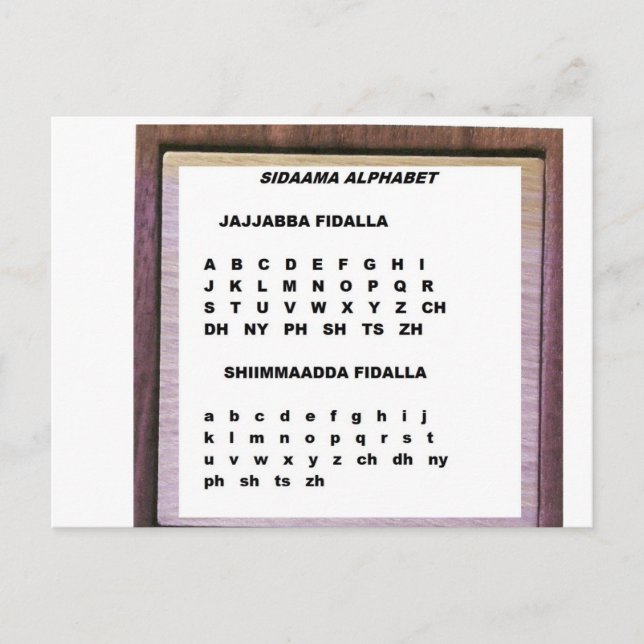 SIDAAMA ALPHABET
JAJJABBA FIDALLA
A B C D E F G H I
J K L M N O P Q R
S T U V W X Y Z CH
DH NY PH SH TS ZH
SHIIMMAADDA FIDALLA
a b c d e f g h i j
k l m n o p q r s t
u v w x y z ch dh ny
ph sh ts zh